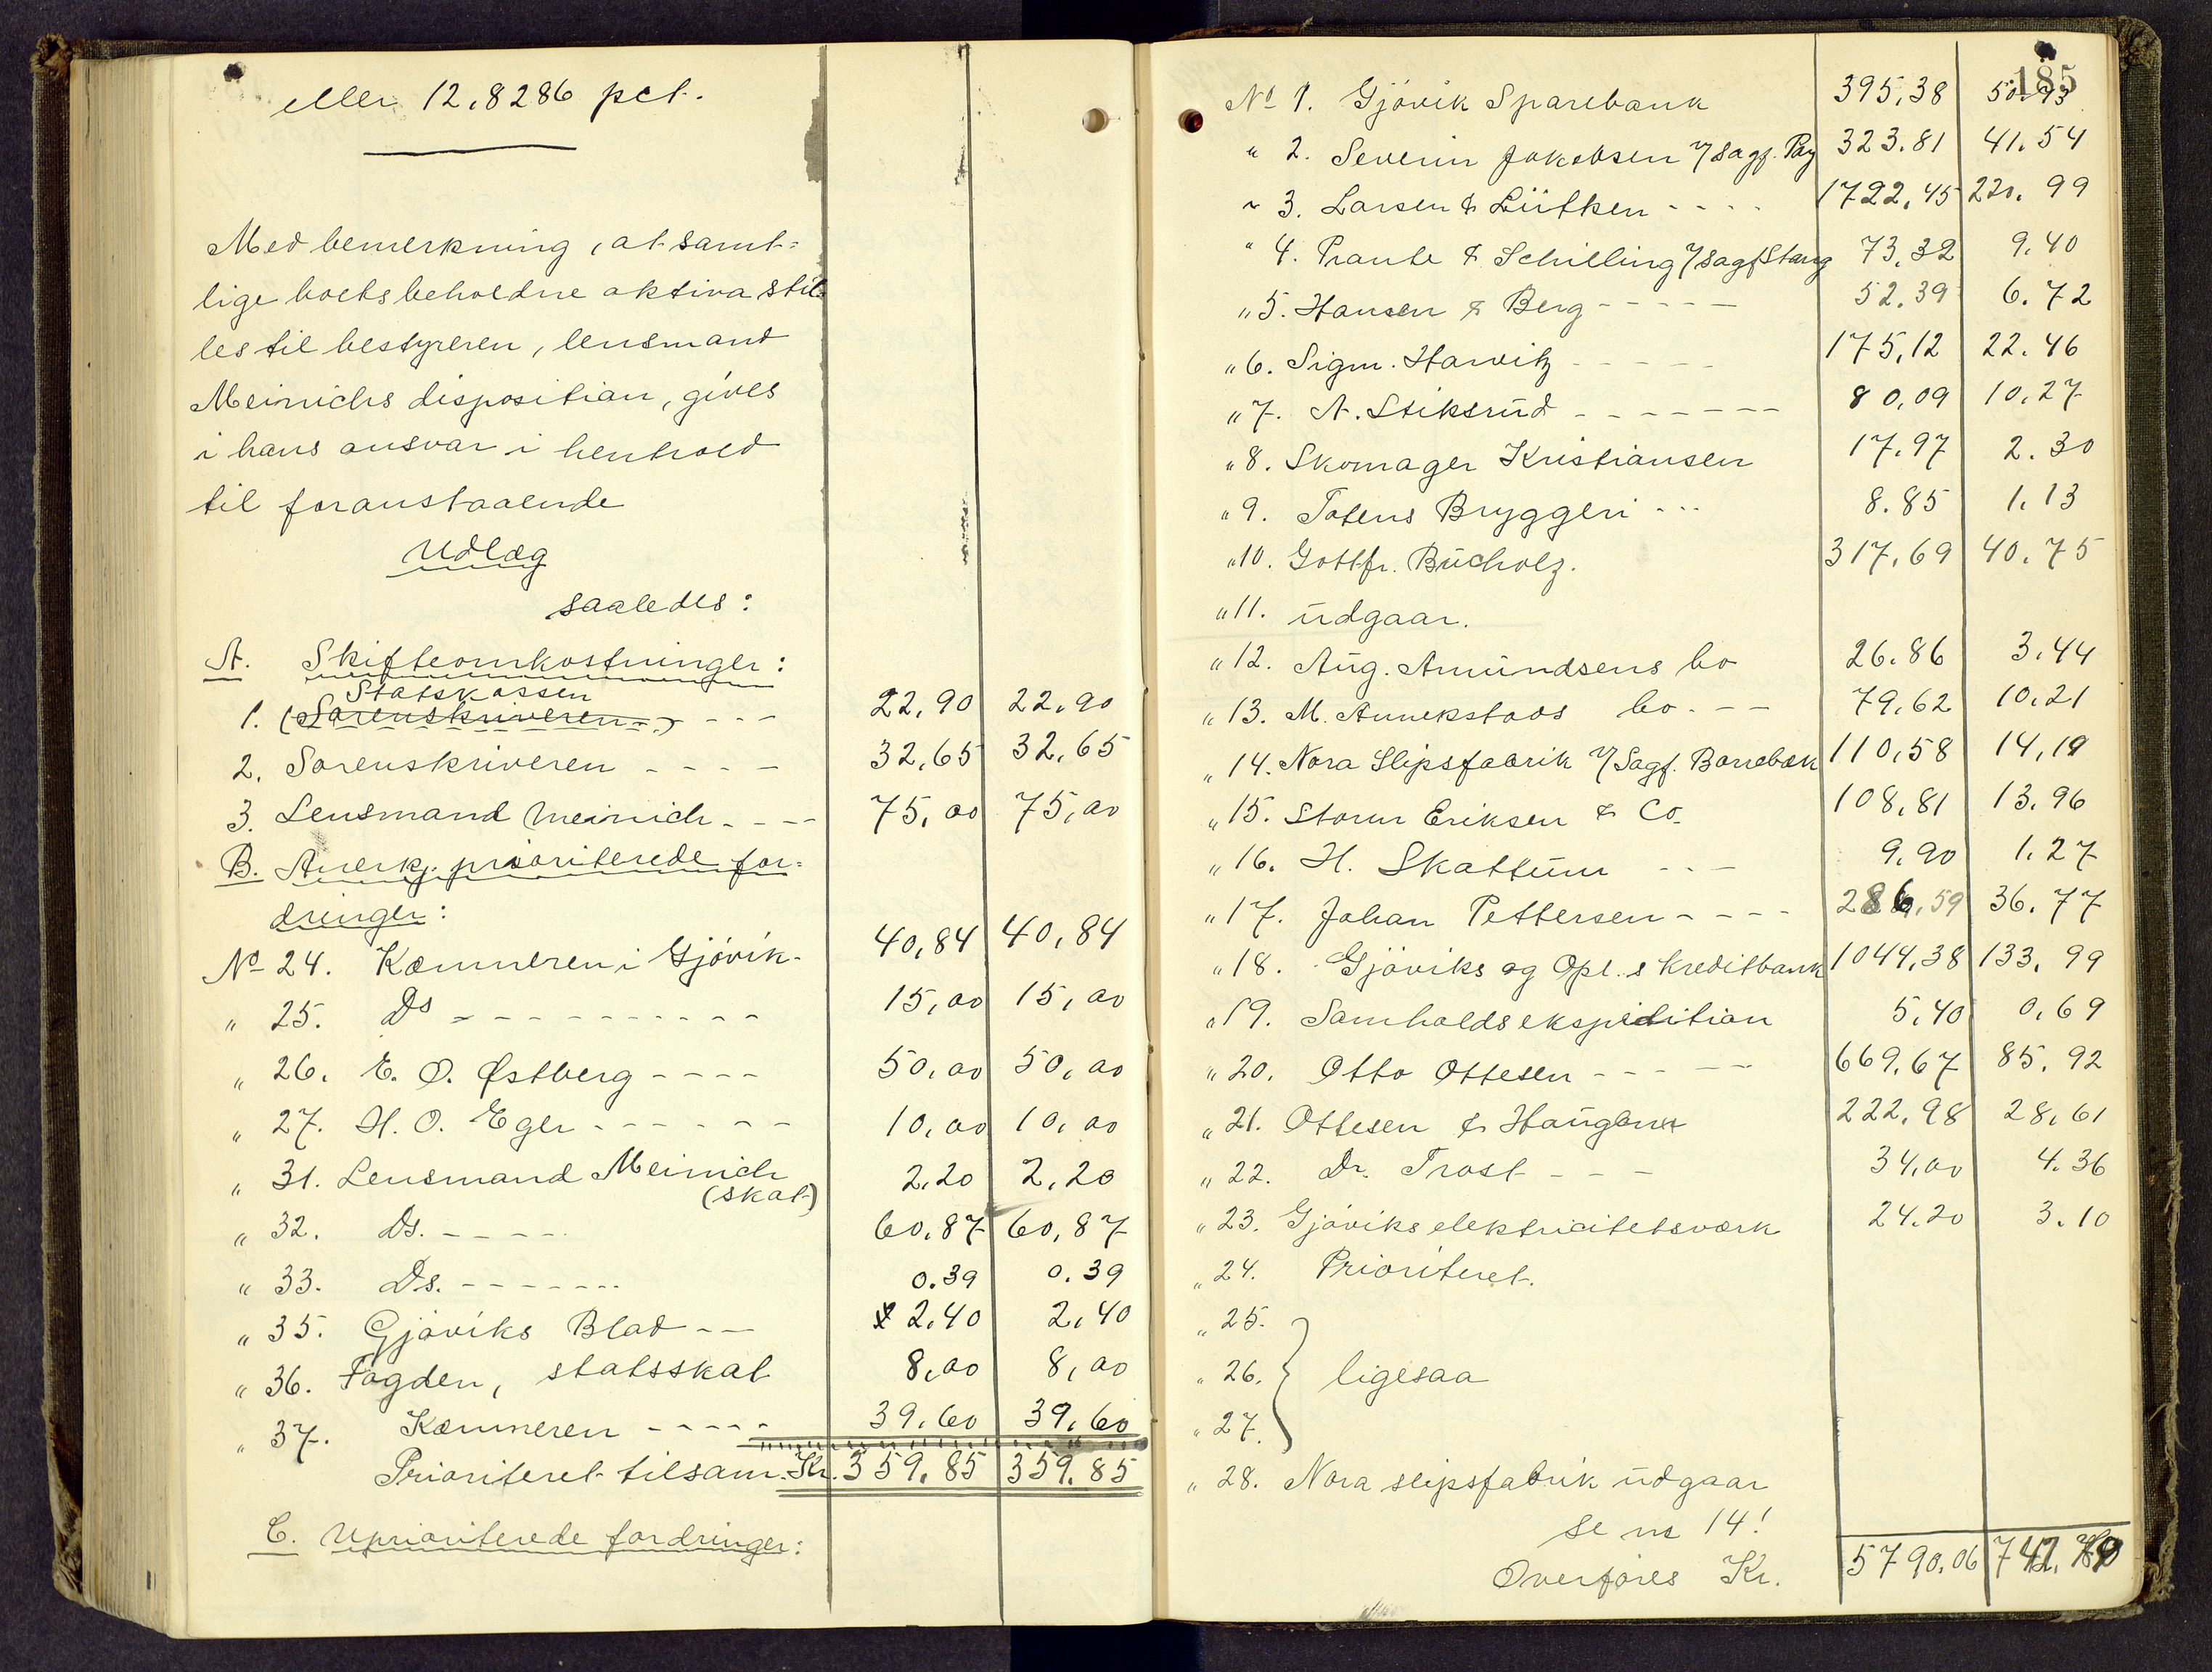 eller 12,8286 pct.
Med bemerkning, at samt-
lige boets beholdne aktiva stil-
les til bestyreren, lensmand
Meinichs disposition, gives
i hans ansvar i henhold
til foranstaaende
Udlæg
saaledes:
A. Skifteomkostninger:
Statskassen
1. (Sorenskriveren) - - - 22,90 22,90
2. Sorenskriveren - - - - 32,65 32,65
3. Lensmand Meinich - - - - 75,00 75,00
B. Anerkj. prioriterede for-
dringer:
No 24. Kæmneren i Gjövik- 40,84 40,84
" 25. Do - - - - - - - - - - 15,00 15,00
" 26. E. O. Østberg - - - - 50,00 50,00
" 27. H. O. Eger - - - - - - 10,00 10,00
" 31. Lensmand Meinich 2,20 2,20
(skat)
" 32. Ds. - - - - - 60,87 60,87
" 33. Ds. - - - - - - - 0.39 0.39
" 35. Gjøviks Blad - - 2,40 2,40
" 36. Fogden, statsskat 8,00 8,00
" 37. Kæmneren - - - - - 39,60 39,60
Prioriteret tilsam. Kr. 359,85 359,85
C. Uprioriterede fordringer:
185
No 1. Gjövik Sparebank 395,38 50,73
" 2. Severin Jakobsen v/ sagf. Pay 323.81 41.54
" 3. Larsen & Lütken - - - - 1722,45 220,99
" 4. Prante & Schilling v/ sagf Stang 73,32 9,40
" 5. Hansen & Berg - - - - - 52.39 6.72
" 6. Sigm. Harvitz - - - - - 175,12 22.46
" 7. A. Stiksrud - - - - - - - 80,09 10,27
" 8. Skomager Kristiansen 17,97 2.30
" 9. Totens Bryggeri - - - 8.85 1.13
" 10. Gottfr. Bucholz. 317,69 40.75
" 11. udgaar.
" 12. Aug. Amundsens bo 26.86 3.44
" 13. M. Annekstads bo - - - 79,62 10,21
" 14. Nora Slipsfabrik v/ Sagf. Borrebæk 110,58 14,19
" 15. Storm Eriksen & Co. 108,81 13.96
" 16. H. Skattum - - - 9,90 1.27
" 17. Johan Pettersen - - - - 286,59 36.77
" 18. Gjöviks og Opl.s Kreditbank 1044,38 133,99
" 19. Samholds ekspedition 5,40 0,69
" 20. Otto Ottesen - - - - - 669,67 85.92
" 21. Ottesen & Haugen 222,98 28,61
" 22. Dr. Trost - - - 34,00 4.36
" 23. Gjøviks elektricitetsverk 24.20 3.10
" 24. Prioriteret.
" 25.
" 26. ligesaa
" 27.
" 28. Nora slipsfabrik udgaar
se no 14!
Overføres Kr. 5790.06